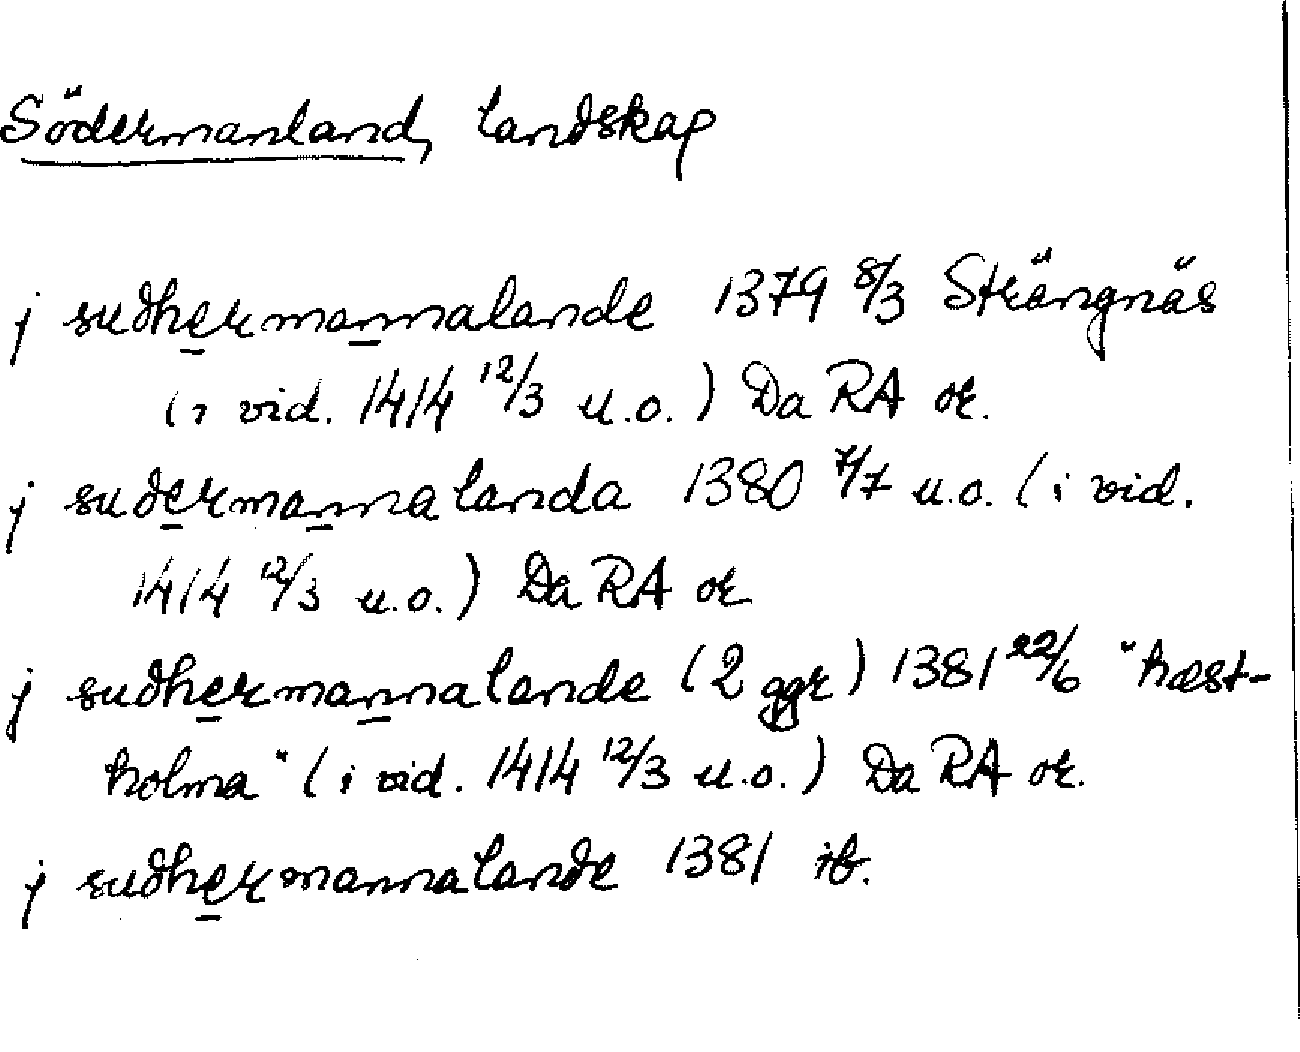 Södermanland, landskap
j sudhermannalande 1379 8/3 Strängnäs
(i vid. 1414 12/3 u.o.) Da RA or.
j sudermannalanda 1380 7/7 u.o. (i vid.
1414 12/3 u.o.) Da RA or
j sudhermannalande (2 ggr) 1381 22/6 "hæst-
holma" (i vid. 1414 12/3 u.o.) Da RA or.
j sudhermannalande 1381 ib.